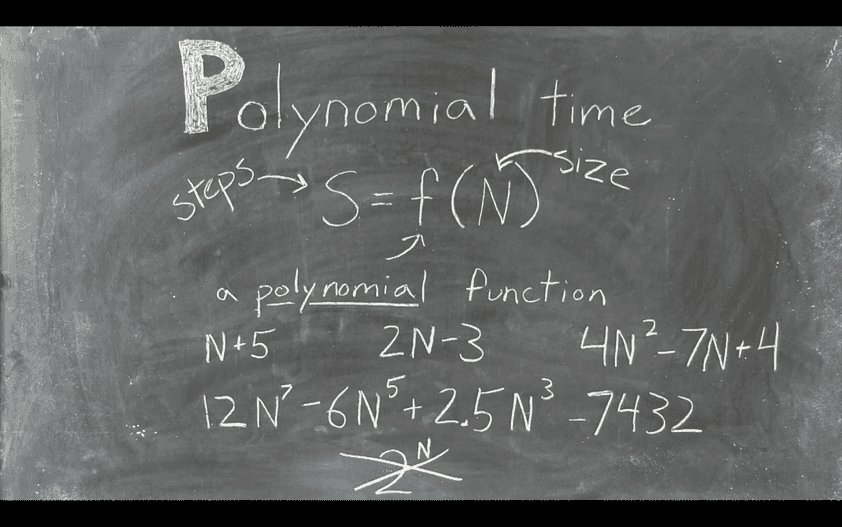 Polynomial time
steps → S = f(N) size
a polynomial function
N+5 2N-3 4N²-7N+4
12N⁷-6N⁵+2.5N³-7432
2ᴺ